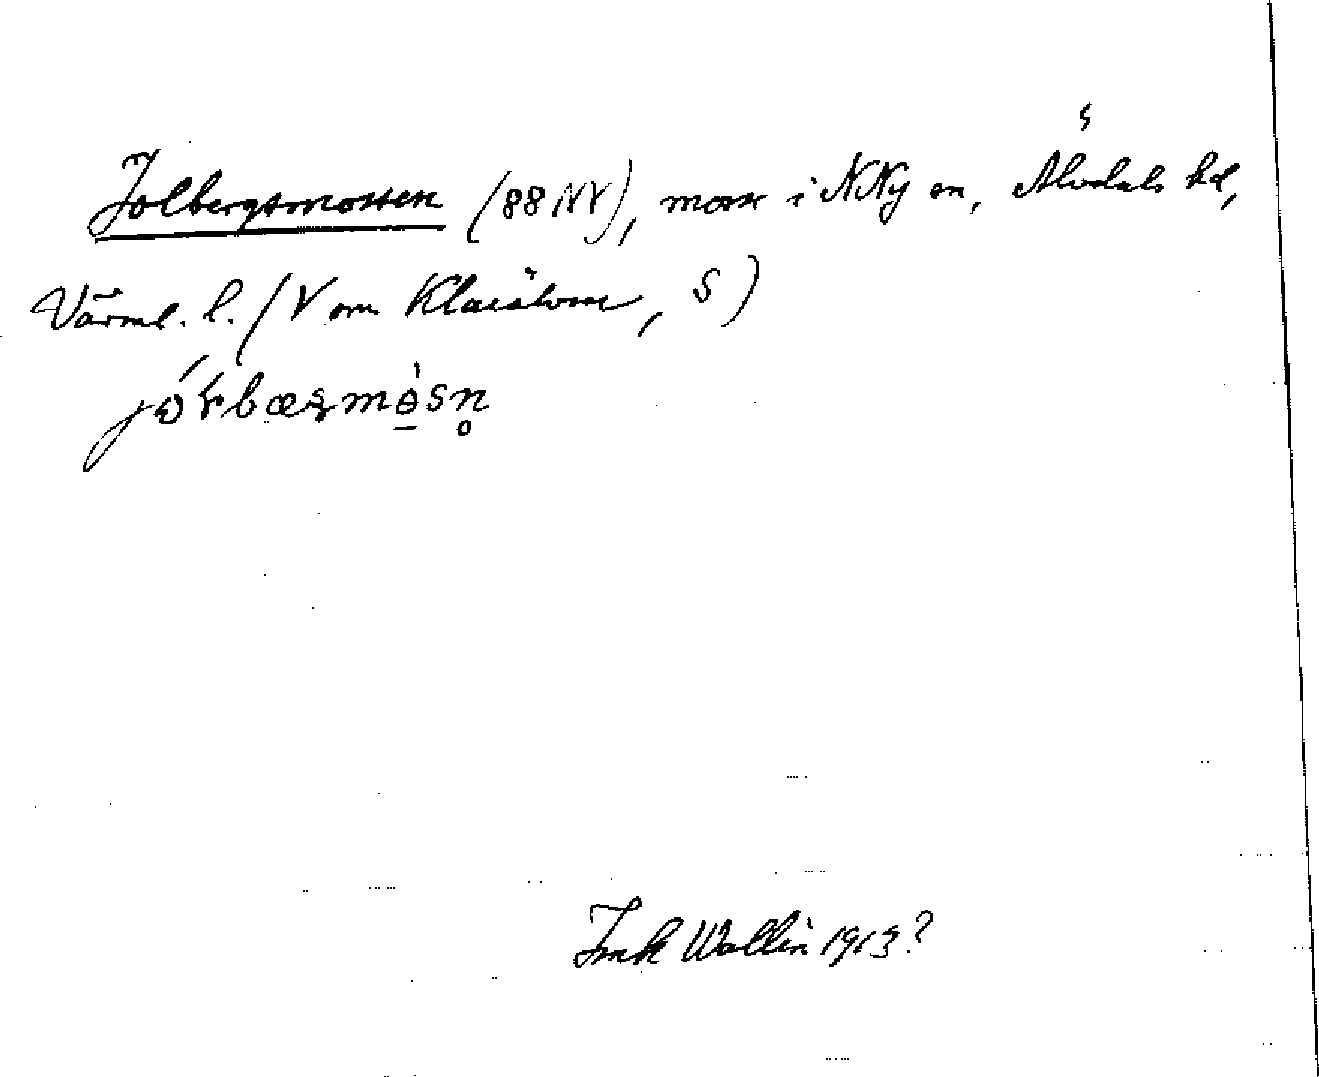 Jolbergsmossen (88 NV), mosse i NNy sn, Älvdals hd,
Värml. l. (V om Klarälven, S)
Ink Wallin 1913?